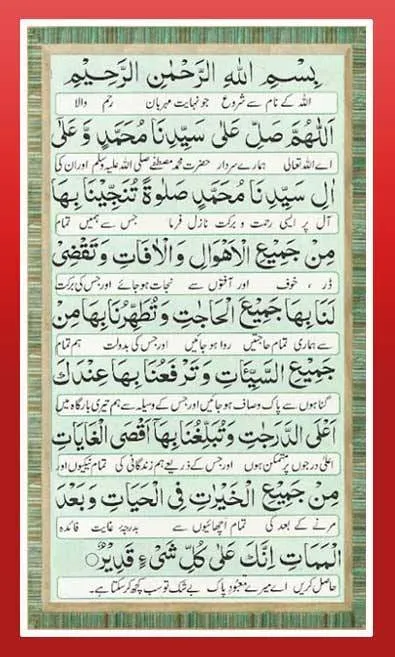 بِسْمِ اللهِ الرَّحْمٰنِ الرَّحِيْمِ
اللہ کے نام سے شروع جو نہایت مہربان رحم والا
اَللّٰهُمَّ صَلِّ عَلٰى سَيِّدِنَا مُحَمَّدٍ وَّ عَلٰٓى
اے اللہ تعالی ہمارے سردار حضرت محمد مصطفے صلی اللہ علیہ وسلم اور ان کی
اٰلِ سَيِّدِنَا مُحَمَّدٍ صَلٰوةً تُنَجِّيْنَا بِهَا
آل پر ایسی رحمت و برکت نازل فرما جس سے ہمیں تمام
مِنْ جَمِيْعِ الْاَهْوَالِ وَ الْاٰفَاتِ وَ تَقْضِىْ
ڈر ، خوف اور آفتوں سے نجات ہو جائے اور جس کی برکت
لَنَا بِهَا جَمِيْعَ الْحَاجٰتِ وَ تُطَهِّرُنَا بِهَا مِنْ
سے ہماری تمام حاجتیں روا ہو جائیں اور جس کی بدولت ہم تمام
جَمِيْعِ السَّيِّاٰتِ وَ تَرْفَعُنَا بِهَا عِنْدَكَ
گناہوں سے پاک و صاف ہو جائیں اور جس کے وسیلہ سے ہم تیری بارگاہ میں
اَعْلَى الدَّرَجٰتِ وَ تُبَلِّغُنَا بِهَآ اَقْصَى الْغَايَاتِ
اعلیٰ درجوں پر متمکن ہوں اور جس کے ذریعے ہم زندگانی کی تمام نیکیوں اور
مِنْ جَمِيْعِ الْخَيْرٰتِ فِى الْحَيَاتِ وَ بَعْدَ
مرنے کے بعد کی تمام اچھائیوں سے بدرجۂ غایت فائدہ
الْمَمَاتِ اِنَّكَ عَلٰى كُلِّ شَىْءٍ قَدِيْرٌ
حاصل کریں اے میرے معبود پاک بے شک تو سب کچھ کر سکتا ہے۔